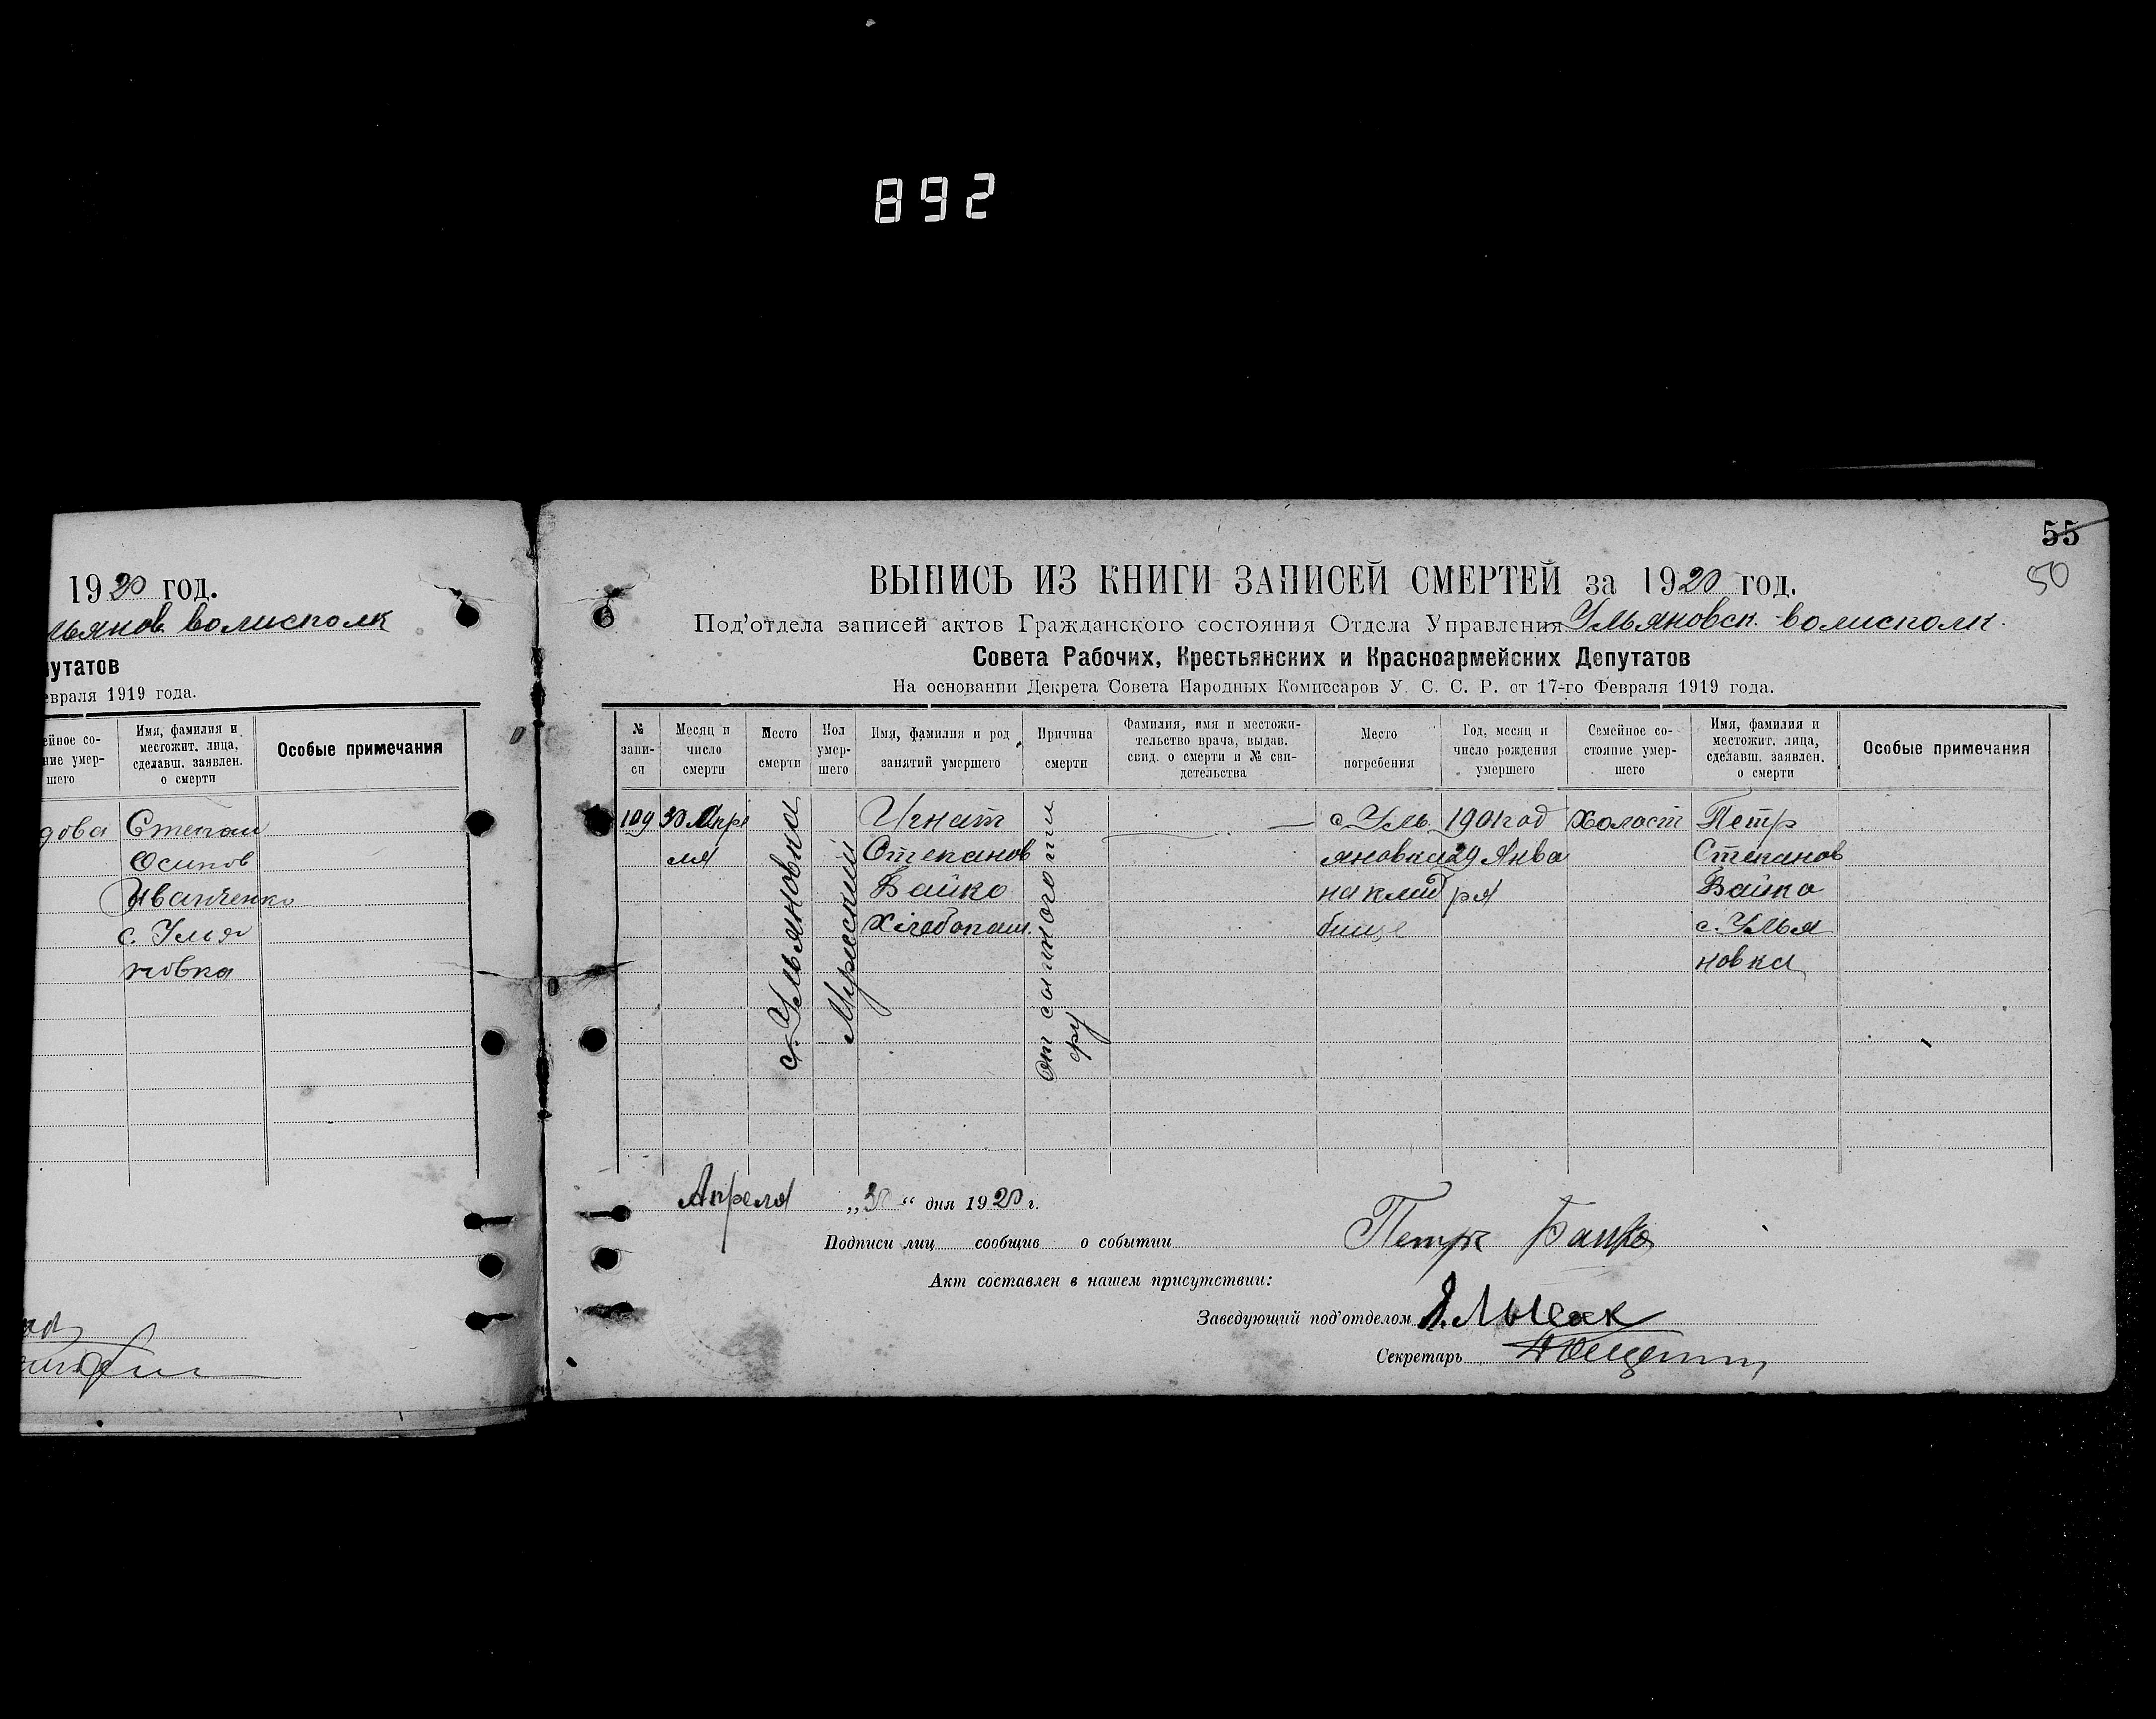 892
1920 год.
льянов волисполк
путатов
евраля 1919 года.
ейное со-
ние умер-
шего
Имя, фамилия и
местожит. лица,
сделавш. заявлен.
о смерти
Особые примечания
дова
Степан
Осипов
Иванченко
с. Улья
новка
55
50
ВЫПИСЬ ИЗ КНИГИ ЗАПИСЕЙ СМЕРТЕЙ за 1920 год.
Под'отдела записей актов Гражданского состояния Отдела Управления Ульяновск. волисполк.
Совета Рабочих, Крестьянских и Красноармейских Депутатов
На основании Декрета Совета Народных Комиссаров У. С. С. Р. от 17-го Февраля 1919 года.
№
запи-
си
Месяц и
число
смерти
Место
смерти
Пол
умер-
шего
Имя, фамилия и род
занятий умершего
Причина
смерти
Фамилия, имя и местожи-
тельство врача, выдав.
свид. о смерти и № сви-
детельства
Место
погребения
Год, месяц и
число рождения
умершего
Семейное со-
стояние умер-
шего
Имя, фамилия и
местожит. лица,
сделавш. заявлен.
о смерти
Особые примечания
109
30 Апре
ля
с. Ульяновка
Мужеский
Игнат
Степанов
Байко
Хлебопаш.
От сыпного ти
фу
с Уль
яновка
на клад
бище
1901 год
29 Янва
ря
Холост
Петр
Степанов
Байко
с. Улья
новка
Апреля „30“ дня 1920 г.
Подписи лиц сообщив о событии Петр Байко
Акт составлен в нашем присутствии:
Заведующий под'отделом Лысак
Секретарь